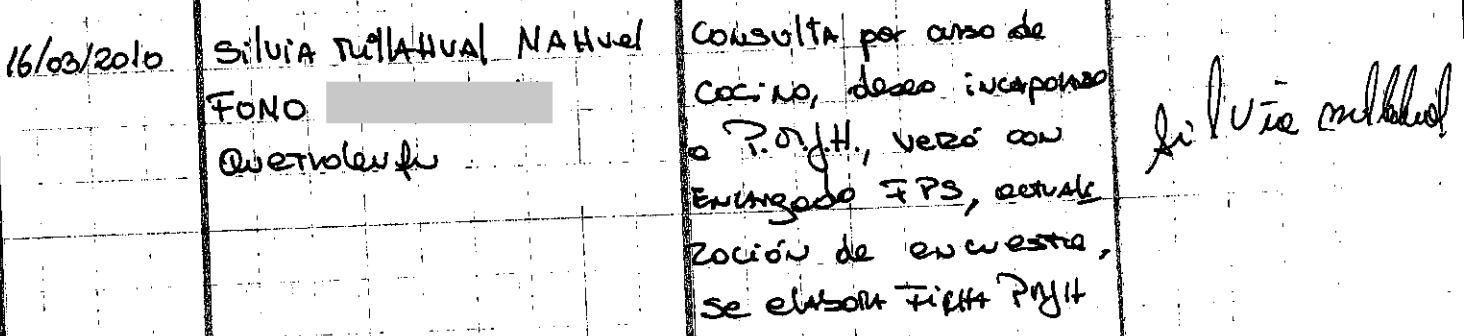 16/03/2010
Silvia Millahual Nahuel
FONO
Quetrolenfu
Consulta por curso de
cocina, desea incorporarse
a P.M.J.H., verá con
Encargado FPS, actuali
zación de encuesta,
se elabora Ficha PMJH
Silvia millahual